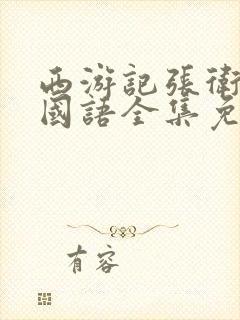 西游記張衛
國語全集免
有容